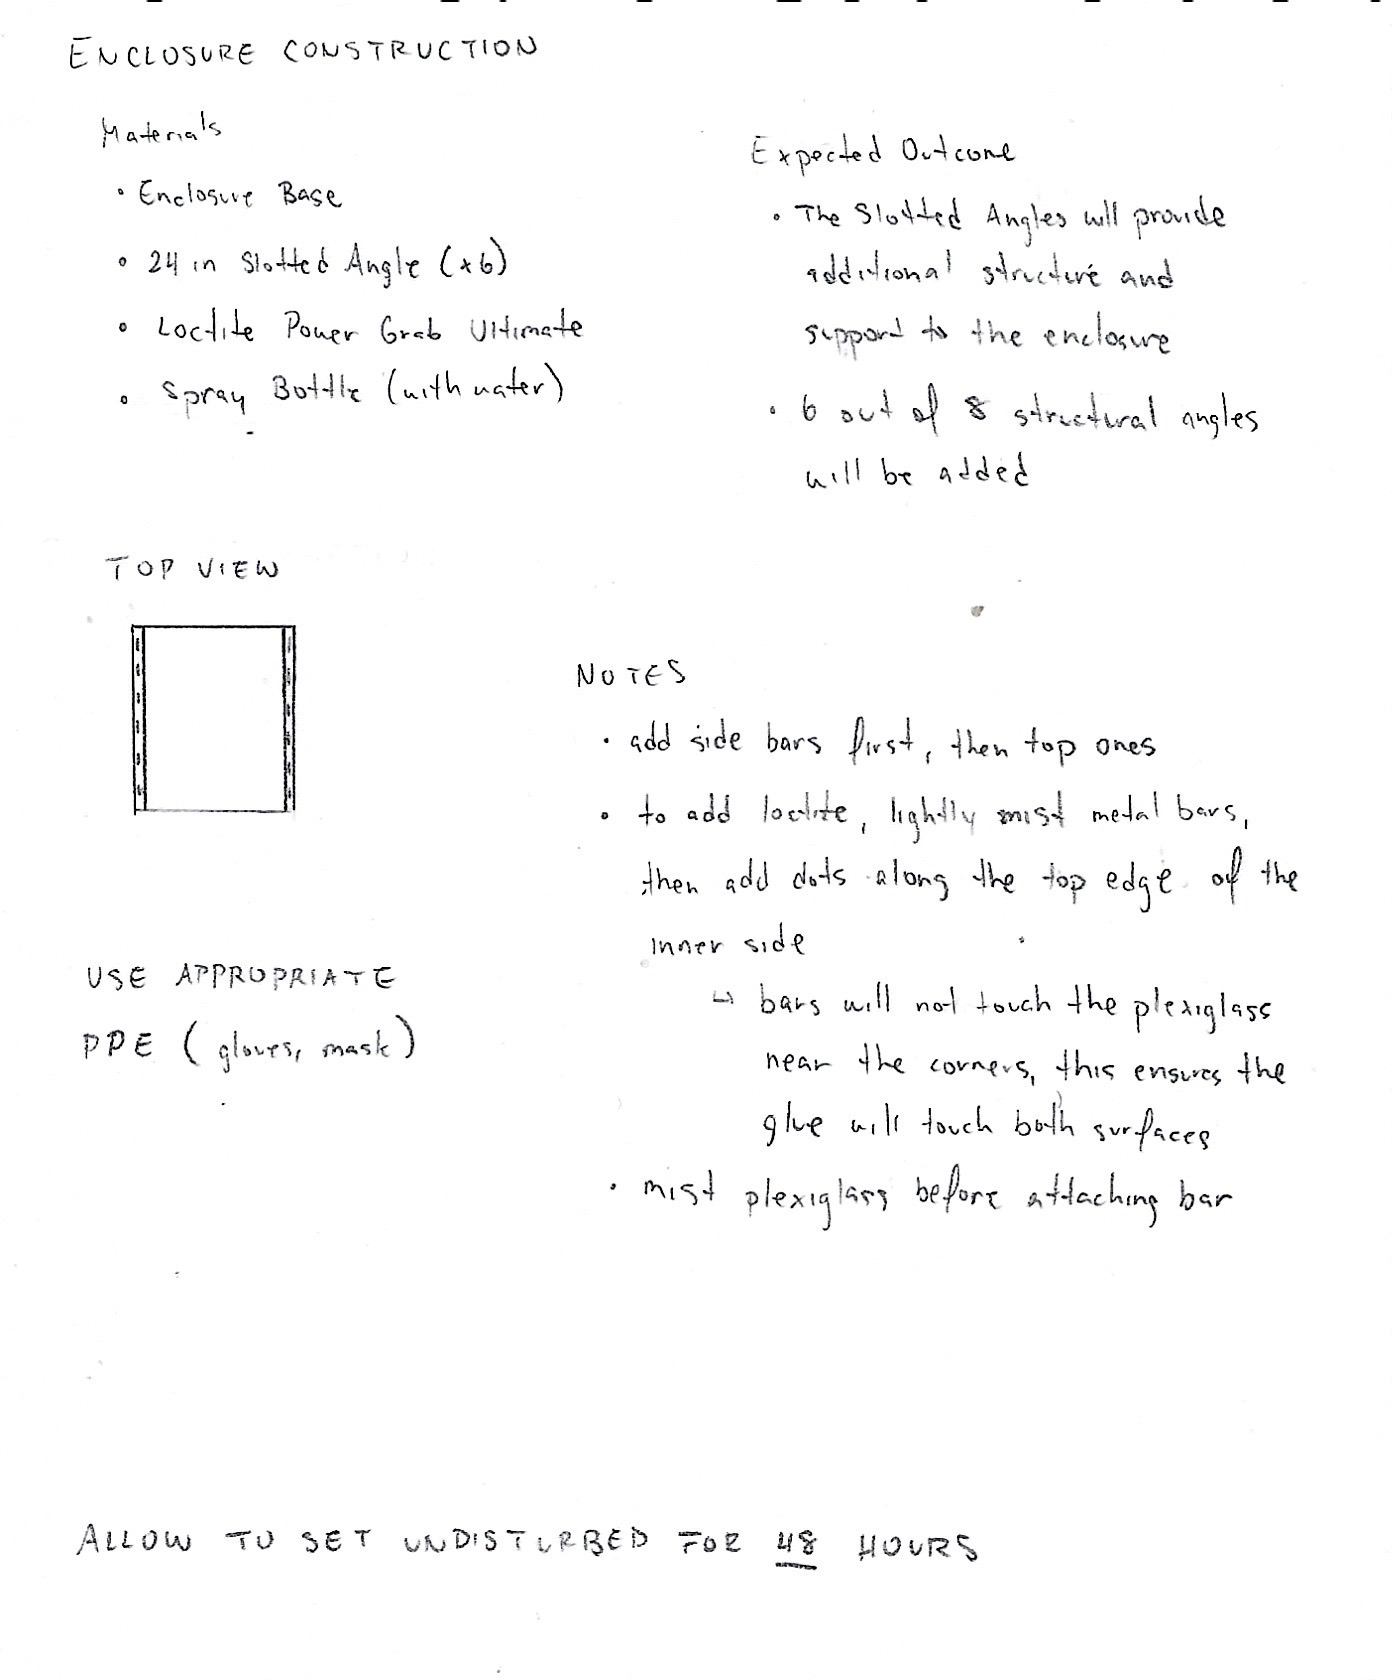 ENCLOSURE CONSTRUCTION
Materials
• Enclosure Base
• 24 in Slotted Angle (x6)
• Loctite Power Grab Ultimate
• Spray Bottle (with water)
Expected Outcome
• The Slotted Angles will provide
additional structure and
support to the enclosure
• 6 out of 8 structural angles
will be added
TOP VIEW
NOTES
• add side bars first, then top ones
• to add loctite, lightly mist metal bars,
then add dots along the top edge of the
inner side
↳ bars will not touch the plexiglass
near the corners, this ensures the
glue will touch both surfaces
• mist plexiglass before attaching bar
USE APPROPRIATE
PPE (gloves, mask)
ALLOW TO SET UNDISTURBED FOR 48 HOURS